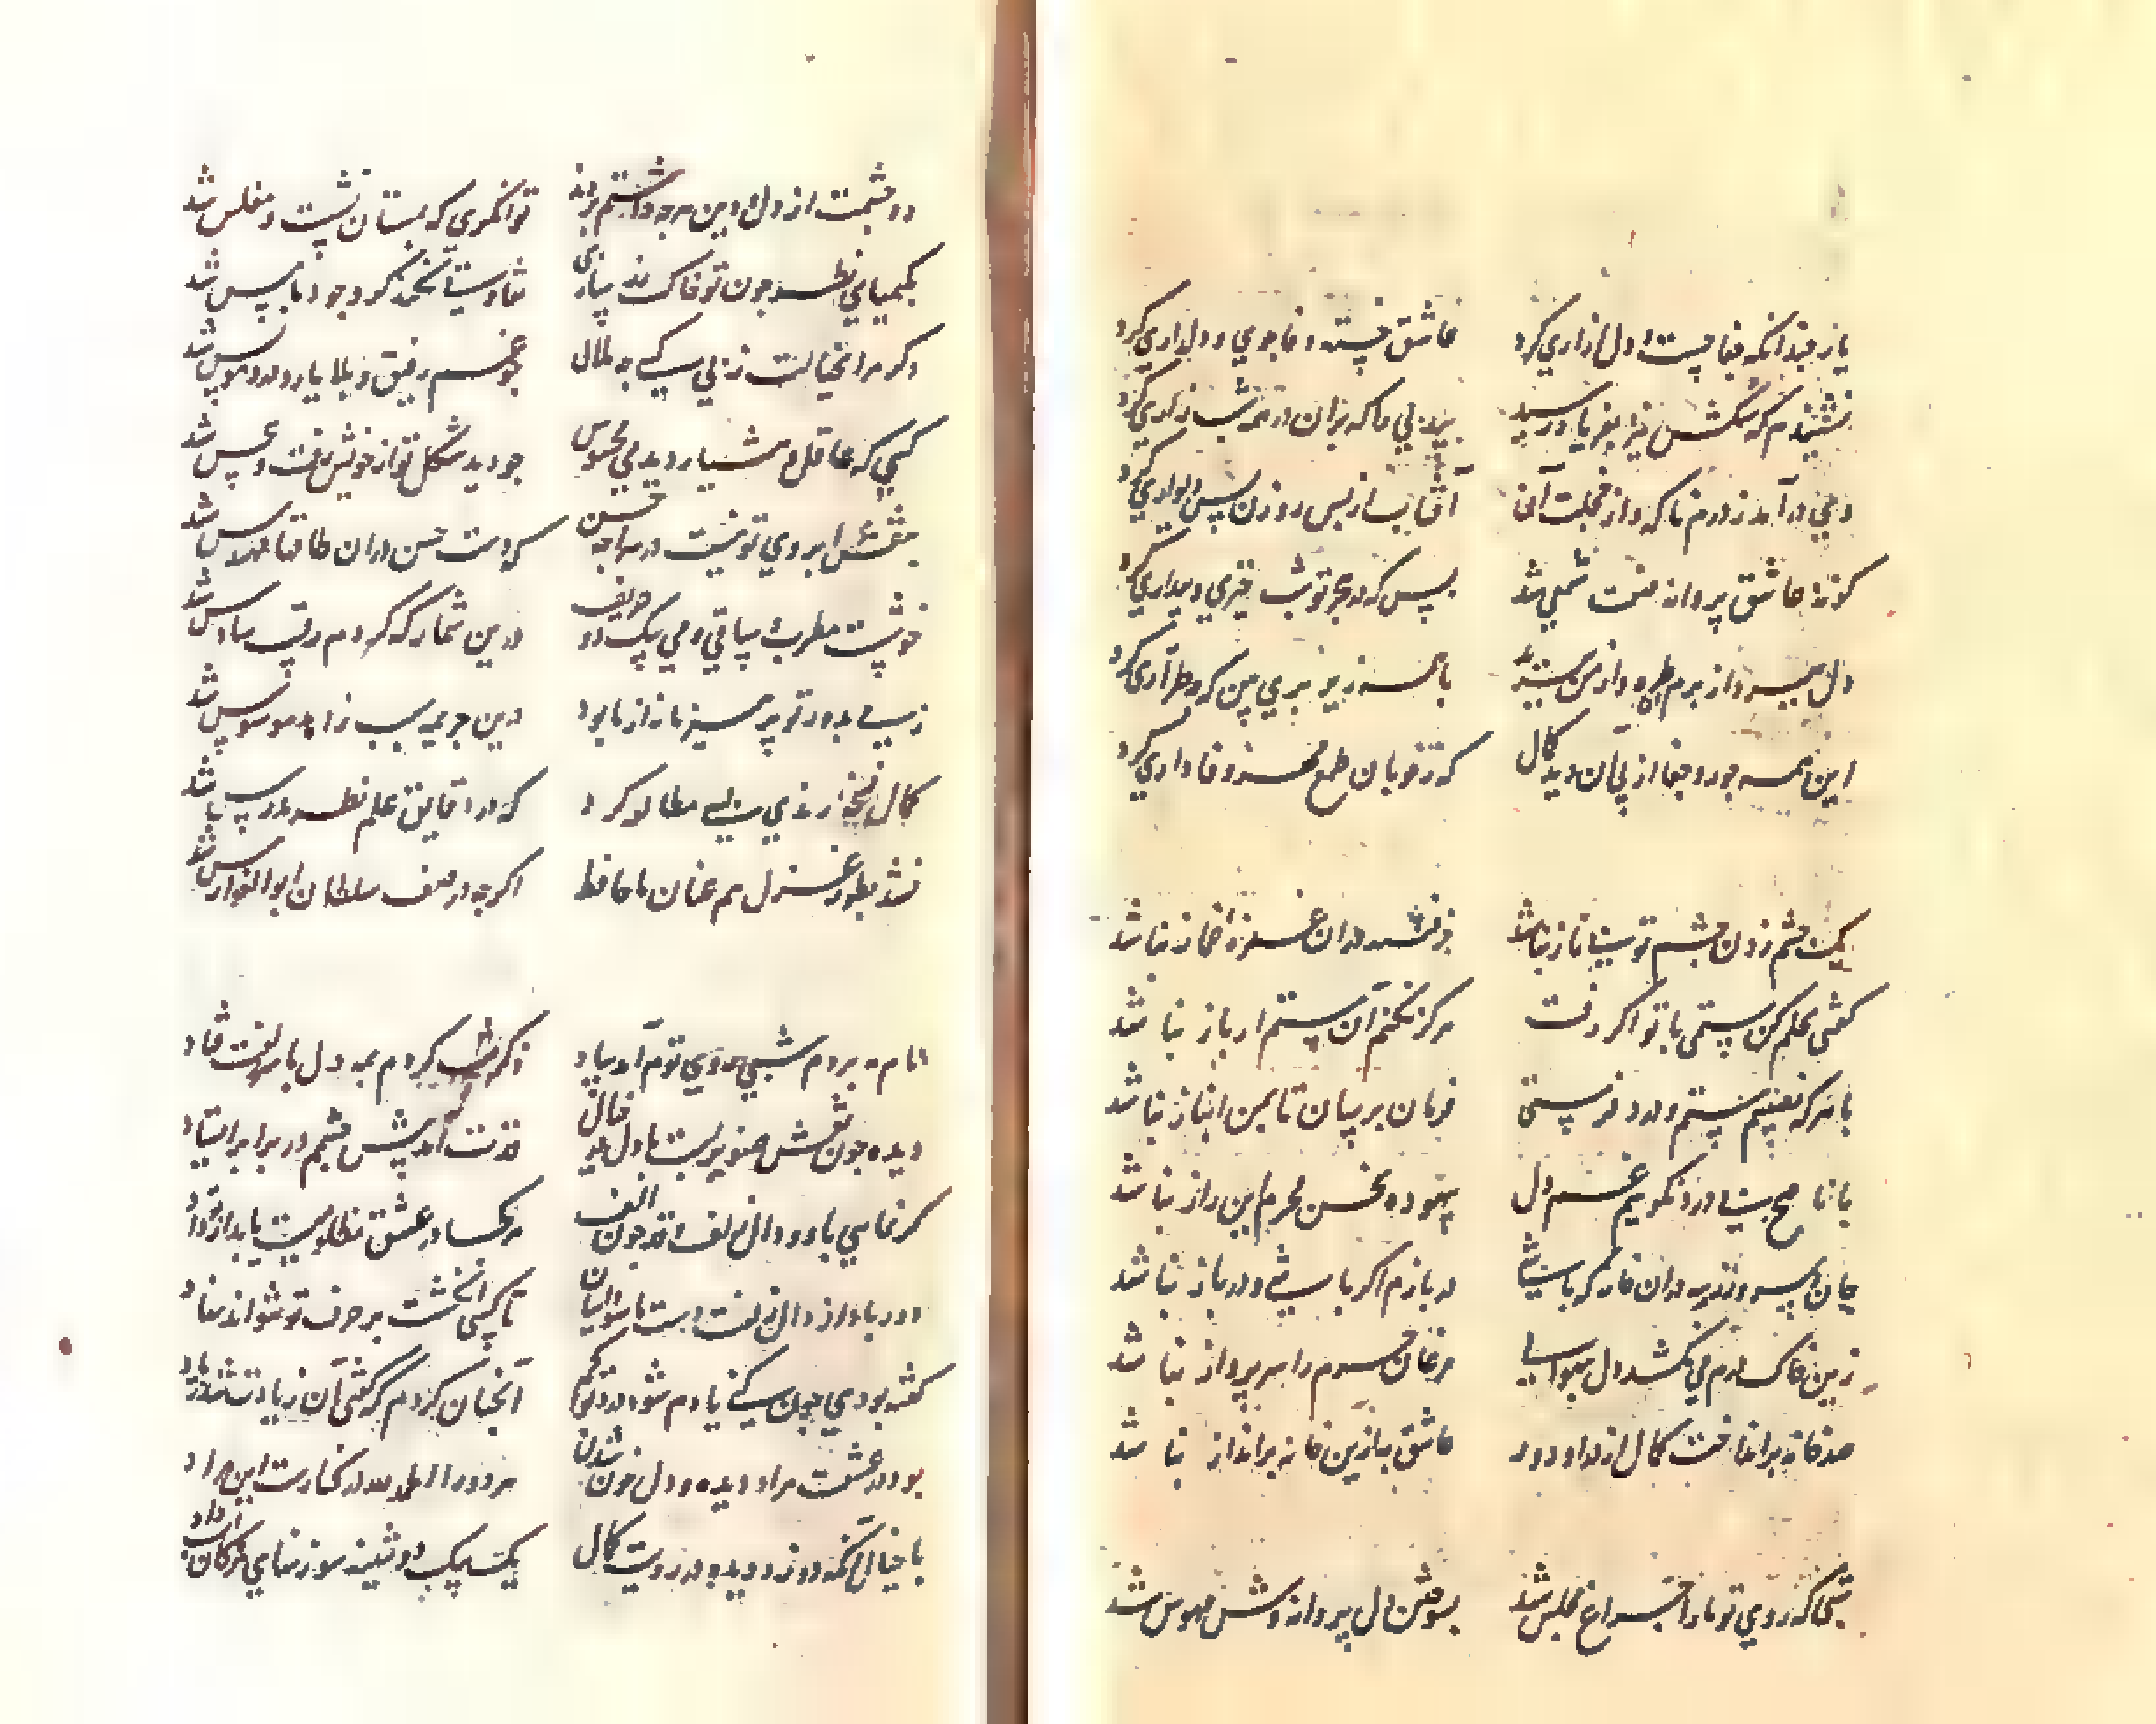 یار چندانکه جفا جست و دل ازاری کرد عاشق خسته وفا جویی و دلداری کرد
نشنیدم که سگش نیز بفریاد رسید بیدلی را که بران در همه شب زاری کرد
دی در آمد ز درم ناکه و از خجلت آن آفتاب از پس روزن پس دیواری کرد
کوئه عاشق پروانه صفت شمعی شد بس که در هجر تو شب خیزی و بیداری کرد
دل سیه دار برم طره و از من بستد با همه زیر بری بین که چه طراری کرد
این همه جور و جفا از پی آن دید کمال که ز خوبان طمع مهر و وفاداری کرد
یک چشم زدن چشم تو بی ناز نباشد جز فتنه دران غمزه غماز نباشد
کفتی بحلم کن ستمی با تو اکر رفت هرکز نکنم آن ستم ار باز نباشد
با هر که نفیتم ستم و درد فرستی فرمان برسان تا بمن انباز نباشد
با ناصح بی درد نکویم غم دل بیهوده سخن محرم این راز نباشد
جان و سر و زر در ان خانه که باشی در بازم اکر باشی و در باز نباشد
زین خاک درم می نکشد دل بهوایی مرغان حرم را سر پرواز نباشد
صد خانه برانداخت کمال از دل و در عاشق به ازین خانه برانداز نباشد
شبی که روی تو ما را چراغ مجلس شد بسوختن دل پروانه وش مهوس شد
دو چشمت از دل و دین هرچه داشتم بردند توانکری که بمستان نشست و مفلس شد
بکیمیای نظر چون تو خاک زر سازی تفاوتی نکند کر وجود ما مس شد
دکر مرا بخیالت ز بی کسی چه ملال چو غم رفیق و بلا یار و درد مونس شد
کسی که عاقل و هشیار دید می محبوس چو دید شکل تو از خویش رفت و بی حس شد
بنقش ابروی تو نیست در سراچه حسن که دست حسن دران طاقها مهندس شد
خوشست مطرب و ساقی و می یک دو حریف درین شمار که کردم رقیب سادس شد
ز می بدور تو پرهیز ما نه از ما بود درین جریمه سبب زاهد موسوس شد
کمال نسخه رندی بسی مطالعه کرد که در دقایق علم نظر مدرس شد
نشد بطور غزل هم عنان ما حافظ اکرچه در صف سلطان ابوالفوارس شد
نام مه بردم شبی روی توام آمد بیاد ذکر شب کردم بمه دل با سر زلفت فتاد
دیده چون نقش صنوبر بست با دل خیال قدت آمد پیش چشم در برابر ایستاد
کرنمایی با دو دال زلف و قد چون الف هرکجا در عشق مظلومیست یابد از تو داد
دور باد از دال زلفت دست ما سوداییان تا کسی انکشت بر حرف تو نتواند نهاد
کفته بودی چون کنی یادم شود دردت کم آنچنان کردم که کفتی آن زیادت شد زیاد
بود در عشقت مراد دیده و دل خون شدن هر دو را الحمد لله در کنارت این مراد
با خیال آنکه دوزد دیده در رویت کمال یک بیک دوشینه سوزنهای مژکان آب داد